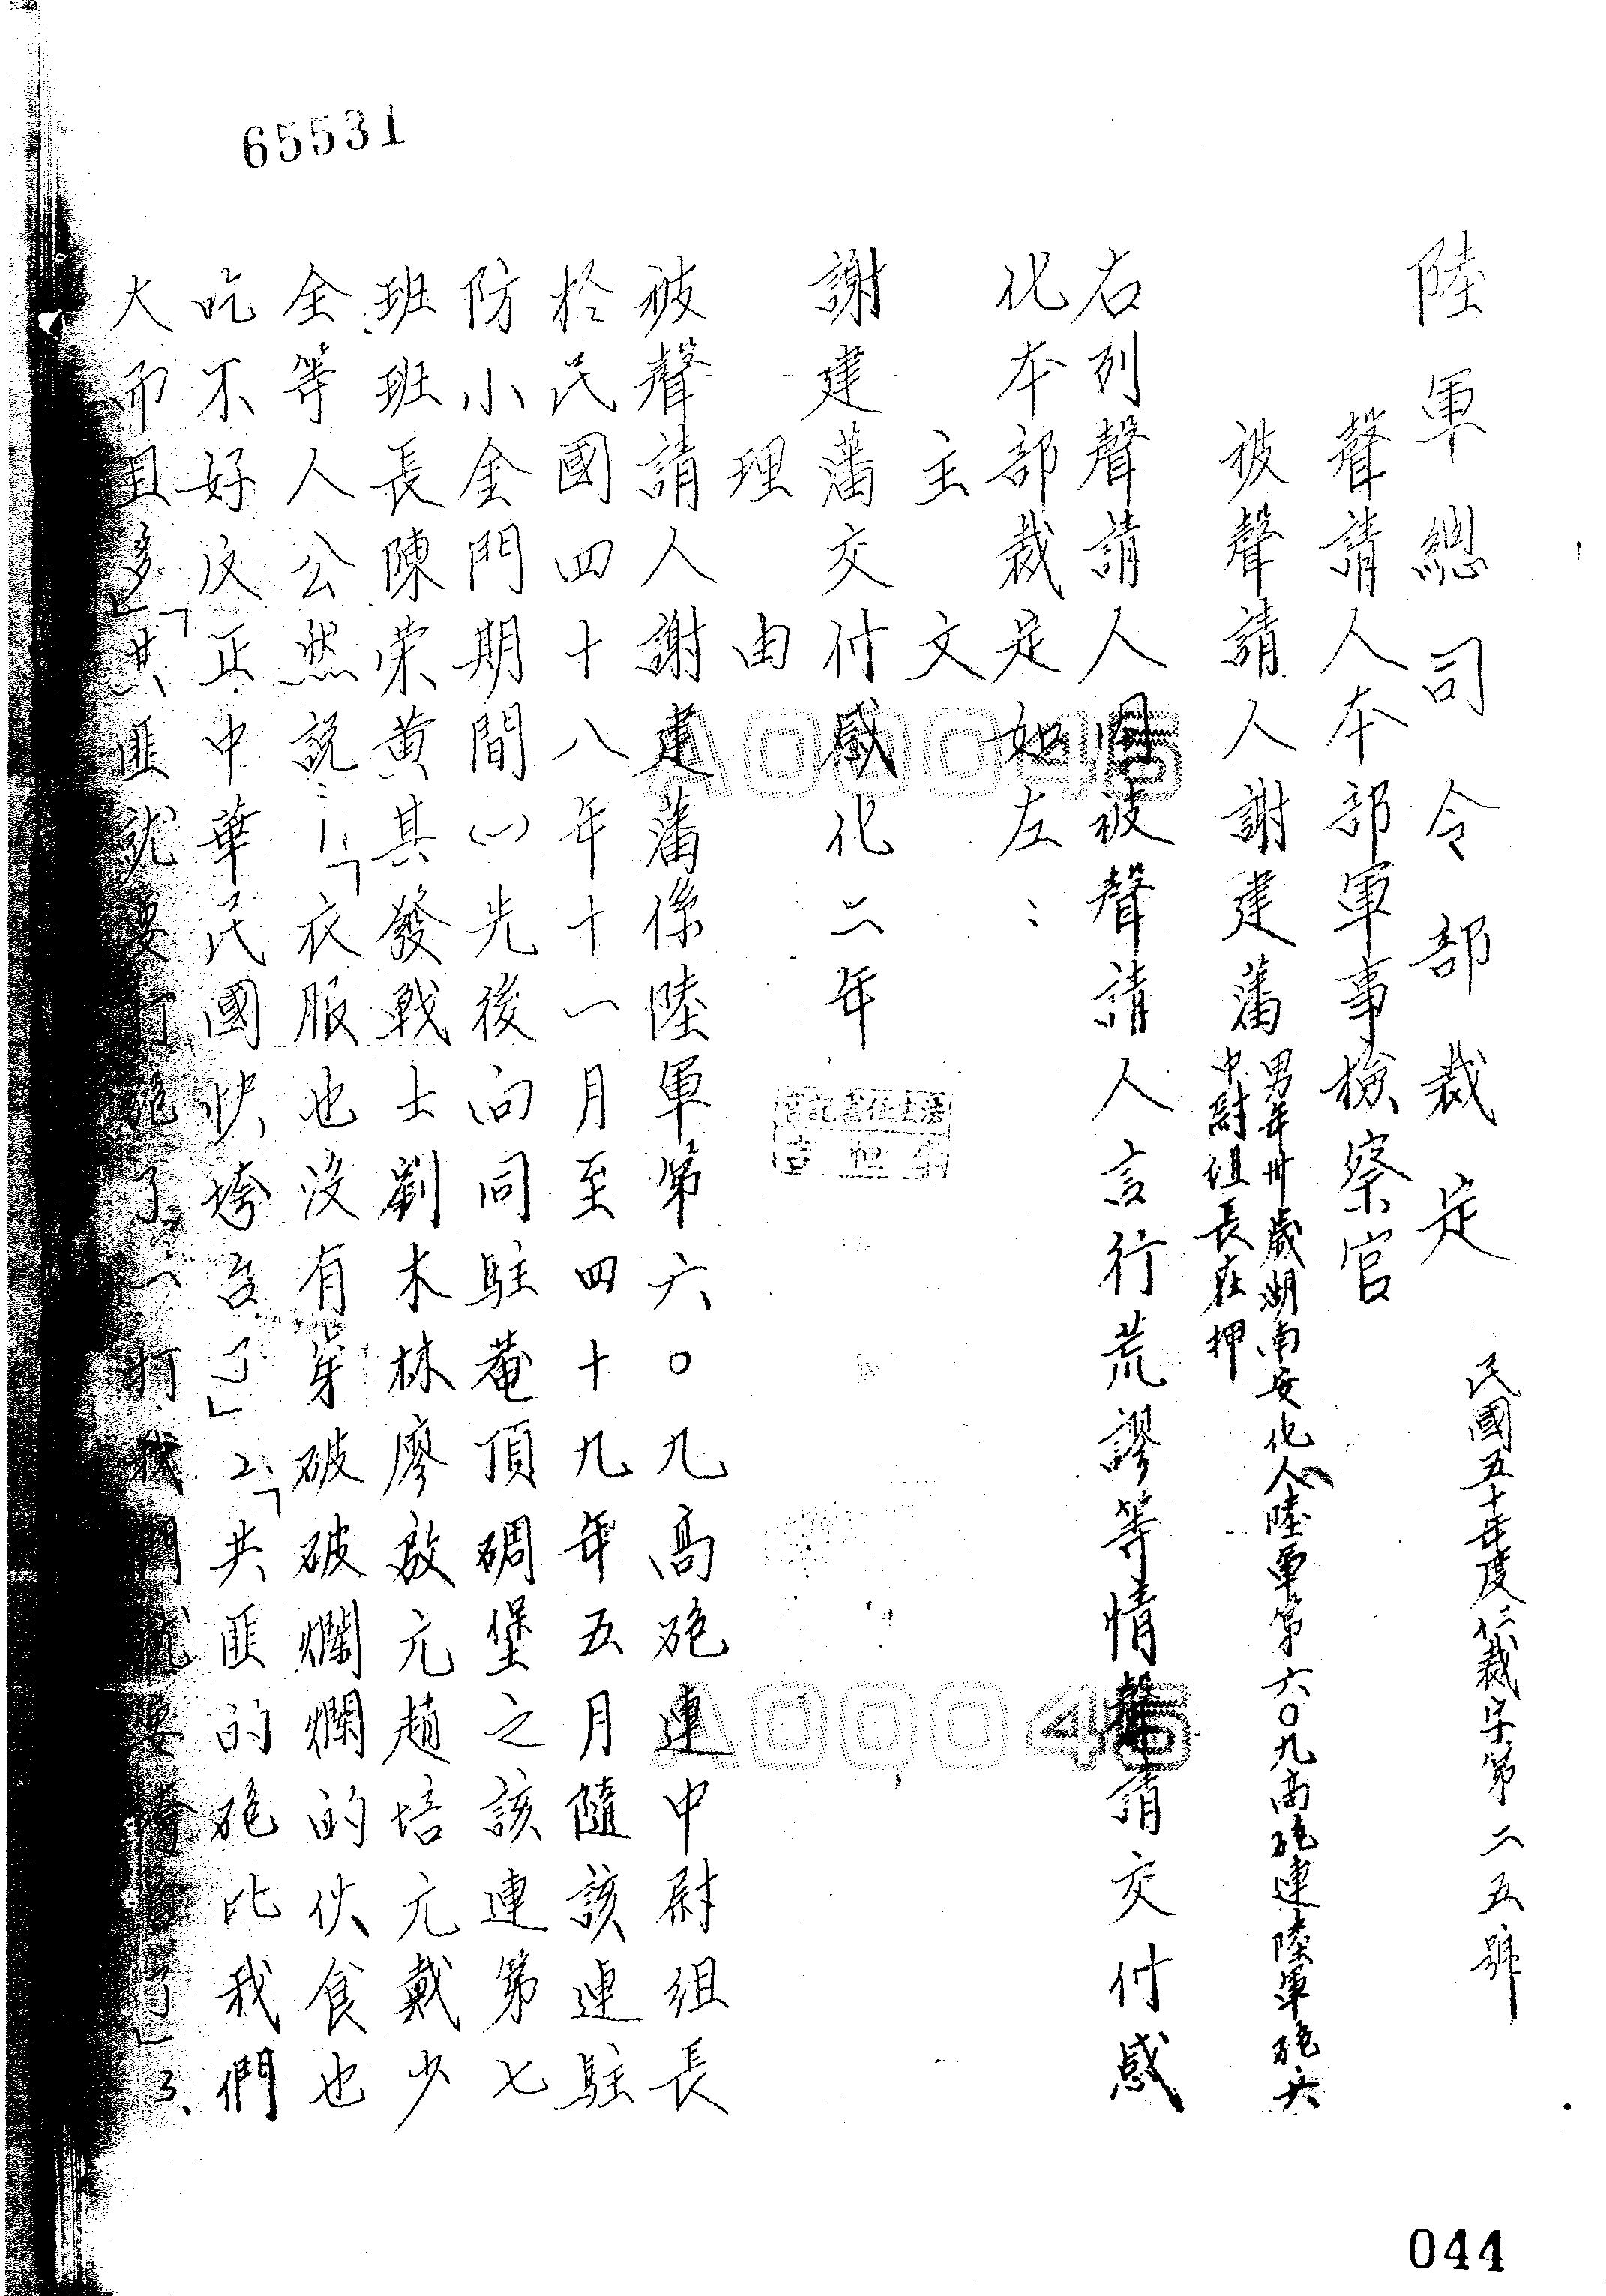 65531
陸軍總司令部裁定
民國五十年度仁裁字第二五號
聲請人本部軍事檢察官
被聲請人謝建藩
男年卅歲湖南安化人陸軍第六〇九高砲連陸軍砲六
中尉組長在押
右列聲請人因被聲請人言行荒謬等情聲請交付感
化本部裁定如左：
主文
謝建藩交付感化二年
理由
被聲請人謝建藩係陸軍第六〇九高砲連中尉組長
於民國四十八年十一月至四十九年五月隨該連駐
防小金門期間(一)先後向同駐菴頂碉堡之該連第七
班班長陳荣黄其發戰士劉木林廖啟元趙培元戴少
全等人公然說：1.「衣服也沒有穿破破爛爛的伙食也
吃不好反正中華民國快垮台了」2.「共匪的砲比我們
大而且多」「共匪說要打就了一打我們就要垮台了」3、
A00045
A00045
044